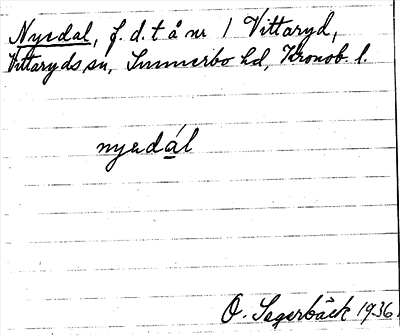 Nyedal, f. d. t å nr 1 Vittaryd,
Vittaryds sn, Sunnerbo hd, Kronob. l.
nyadál
O. Sagerbäck 1936.